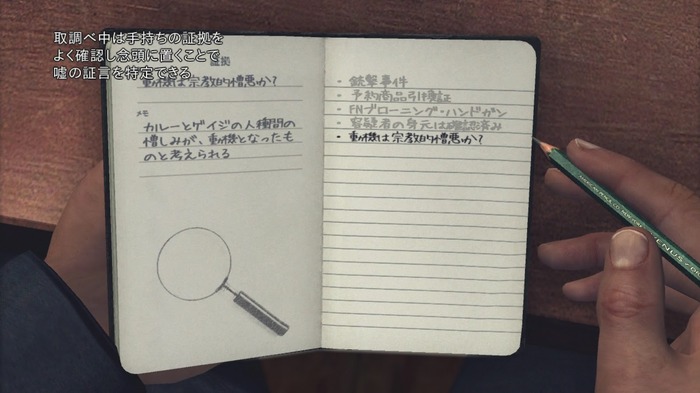 取調べ中は手持ちの証拠を
よく確認し念頭に置くことで
嘘の証言を特定できる
証拠
動機は宗教的憎悪か?
メモ
カルーとゲイジの人種間の
憎しみが、動機となったも
のと考えられる
・銃撃事件
・予約商品引換証
・FNブローニング・ハンドガン
・容疑者の身元は確認済み
・動機は宗教的憎悪か?
VENUS